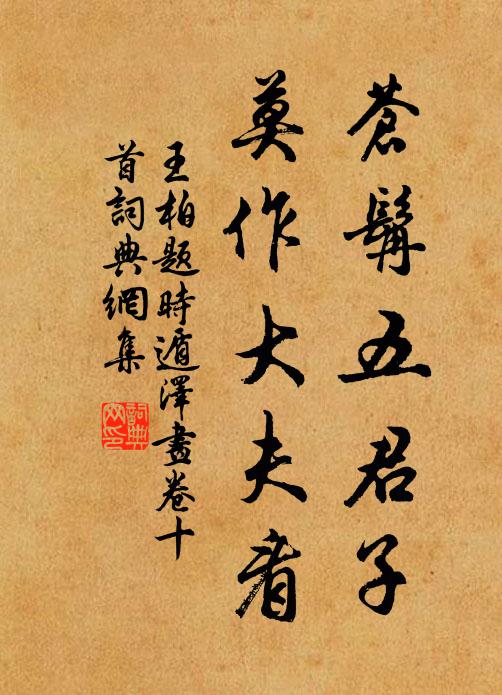 蒼髯五君子
莫作大夫看
王柏題時遁澤畫卷十
首詞典網集
詞典
网印